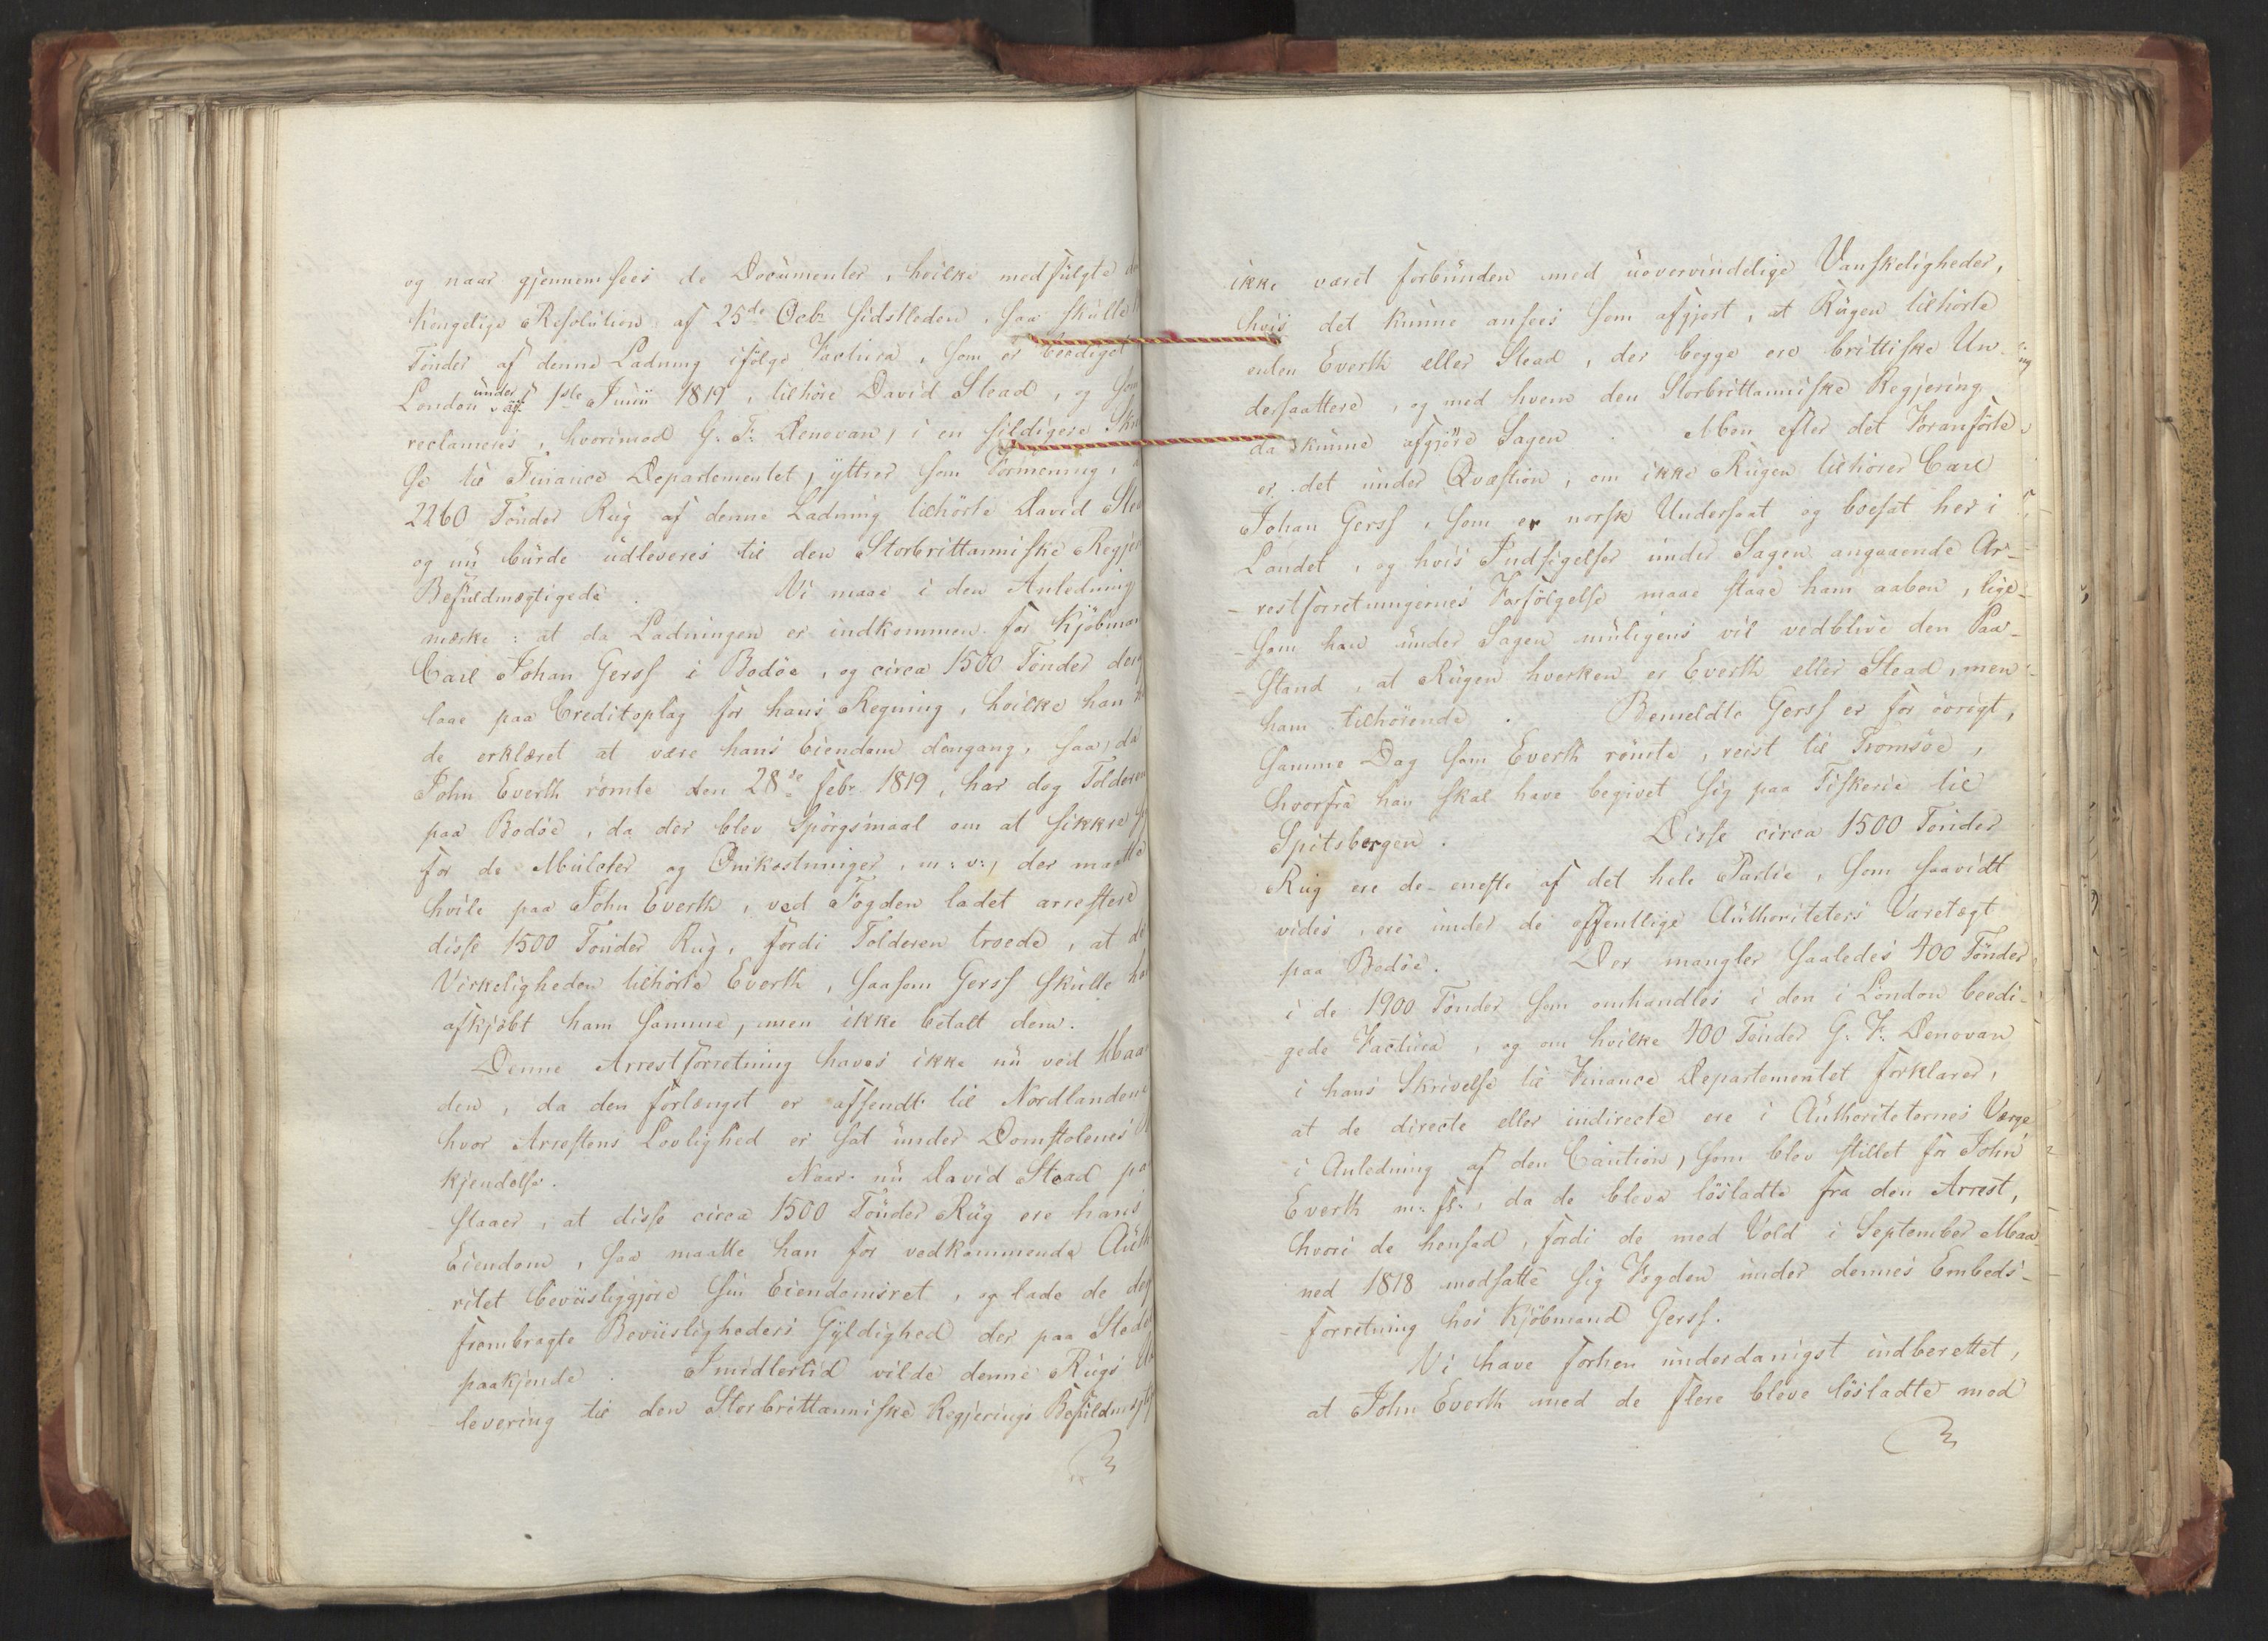 og naar gjennemsees de Documenter, hvilke medfulgte
kongelige Resolution af 25de Octbr sidstleden, saa skulle
Tønder af denne Ladning ifølge Factura, som er beediget
London under 1ste Junii 1819, tilhøre David Stead, og som
reclameres, hvorimod G. F. Denovan, i en sildigere
se til Finance Departementet, yttrer som Formening,
2260 Tønder Rug af denne Ladning tilhørte David
og nu burde udleveres til den Storbrittanniske
Befuldmægtigede. Vi maae i den Anledning
mærke: at da Ladningen er indkommen for Kjøbman
Carl Johan Gerss i Bodøe, og circa 1500 Tønder
laae paa Creditoplag for hans Regning, hvilke han
de erklæret at være hans Eiendom dengang, saa, da
John Everth rømte den 28de Febr 1819, har dog Tolderen
paa Bodøe, da der blev Spørgsmaal om at sikkre
for de Mulcter og Omkostninger, m: v:, der maatte
hvile paa John Everth, ved Fogden ladet arrestere
disse 1500 Tønder Rug, fordi Tolderen troede, at de
Virkeligheden tilhørte Everth, saasom Gerss skulle
afkjøbt ham samme, men ikke betalt dem.
Denne Arrestforretning haves ikke nu ved Haan
den, da den forlængst er afsendt til Nordlandene
hvor Arrestens Lovlighed er sat under Domstolenes
kjendelse. Naar nu David Stead paa
staaer, at disse circa 1500 Tønder Rug ere hans
Eiendom, saa maatte han for vedkommende Auth
ritet beviisliggjøre sin Eiendomsret, og lade de
frembragte Beviisligheders Gyldighed der paa Stedet
paakjende. Imidlertid vilde denne Rugs
levering til den Storbrittanniske Regjerings Befuldmægtig
ikke været forbunden med uovervindelige Vanskeligheder,
hvis det kunne ansees som afgjort, at Rugen tilhørte
enten Everth eller Stead, der begge ere brittiske Un-
dersaattere, og med hvem den Storbrittanniske Regjering
da kunne afgjøre Sagen. Men efter det Foranførte
er det under Qvæstion, om ikke Rugen tilhører Carl
Johan Gerss, som er norsk Undersaat og boesat her i
Landet, og hvis Indsigelser under Sagen angaaende Ar-
restforretningernes Forfølgelse maae staae ham aaben, lige-
som han under Sagen muligens vil vedblive den Paa-
stand, at Rugen hverken er Everth eller Stead, men
ham tilhørende. Bemeldte Gerss er for øvrigt,
samme Dag som Everth rømte, reist til Tromsøe,
hvorfra han skal have begivet sig paa Fiskerie til
Spitsbergen. Disse circa 1500 Tønder
Rug ere de eneste af det hele Partie, som saavidt
vides, ere under de offentlige Authoriteters Varetægt
paa Bodøe. Der mangler saaledes 400 Tønder
i de 1900 Tønder som omhandles i den i London beedi-
gede Factura, og om hvilke 400 Tønder G. F. Denovan
i hans Skrivelse til Finance Departementet forklarer,
at de directe eller indirecte ere i Authoriteternes Værge
i Anledning af den Caution, som blev stillet for John
Everth m: fl:, da de bleve løsladte fra den Arrest,
hvori de hensad, fordi de med Vold i September Maa-
ned 1818 modsatte sig Fogden under dennes Embeds-
forretning hos Kjøbmand Gerss.
Vi have forhen underdanigst indberettet,
at John Everth med de flere bleve løsladte mod